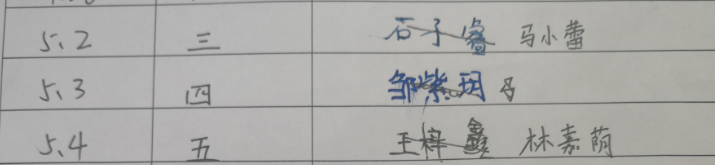 5、2 三 石子睿 马小蕾
5、3 四 邹紫玥
5、4 五 王梓鑫 林嘉荫